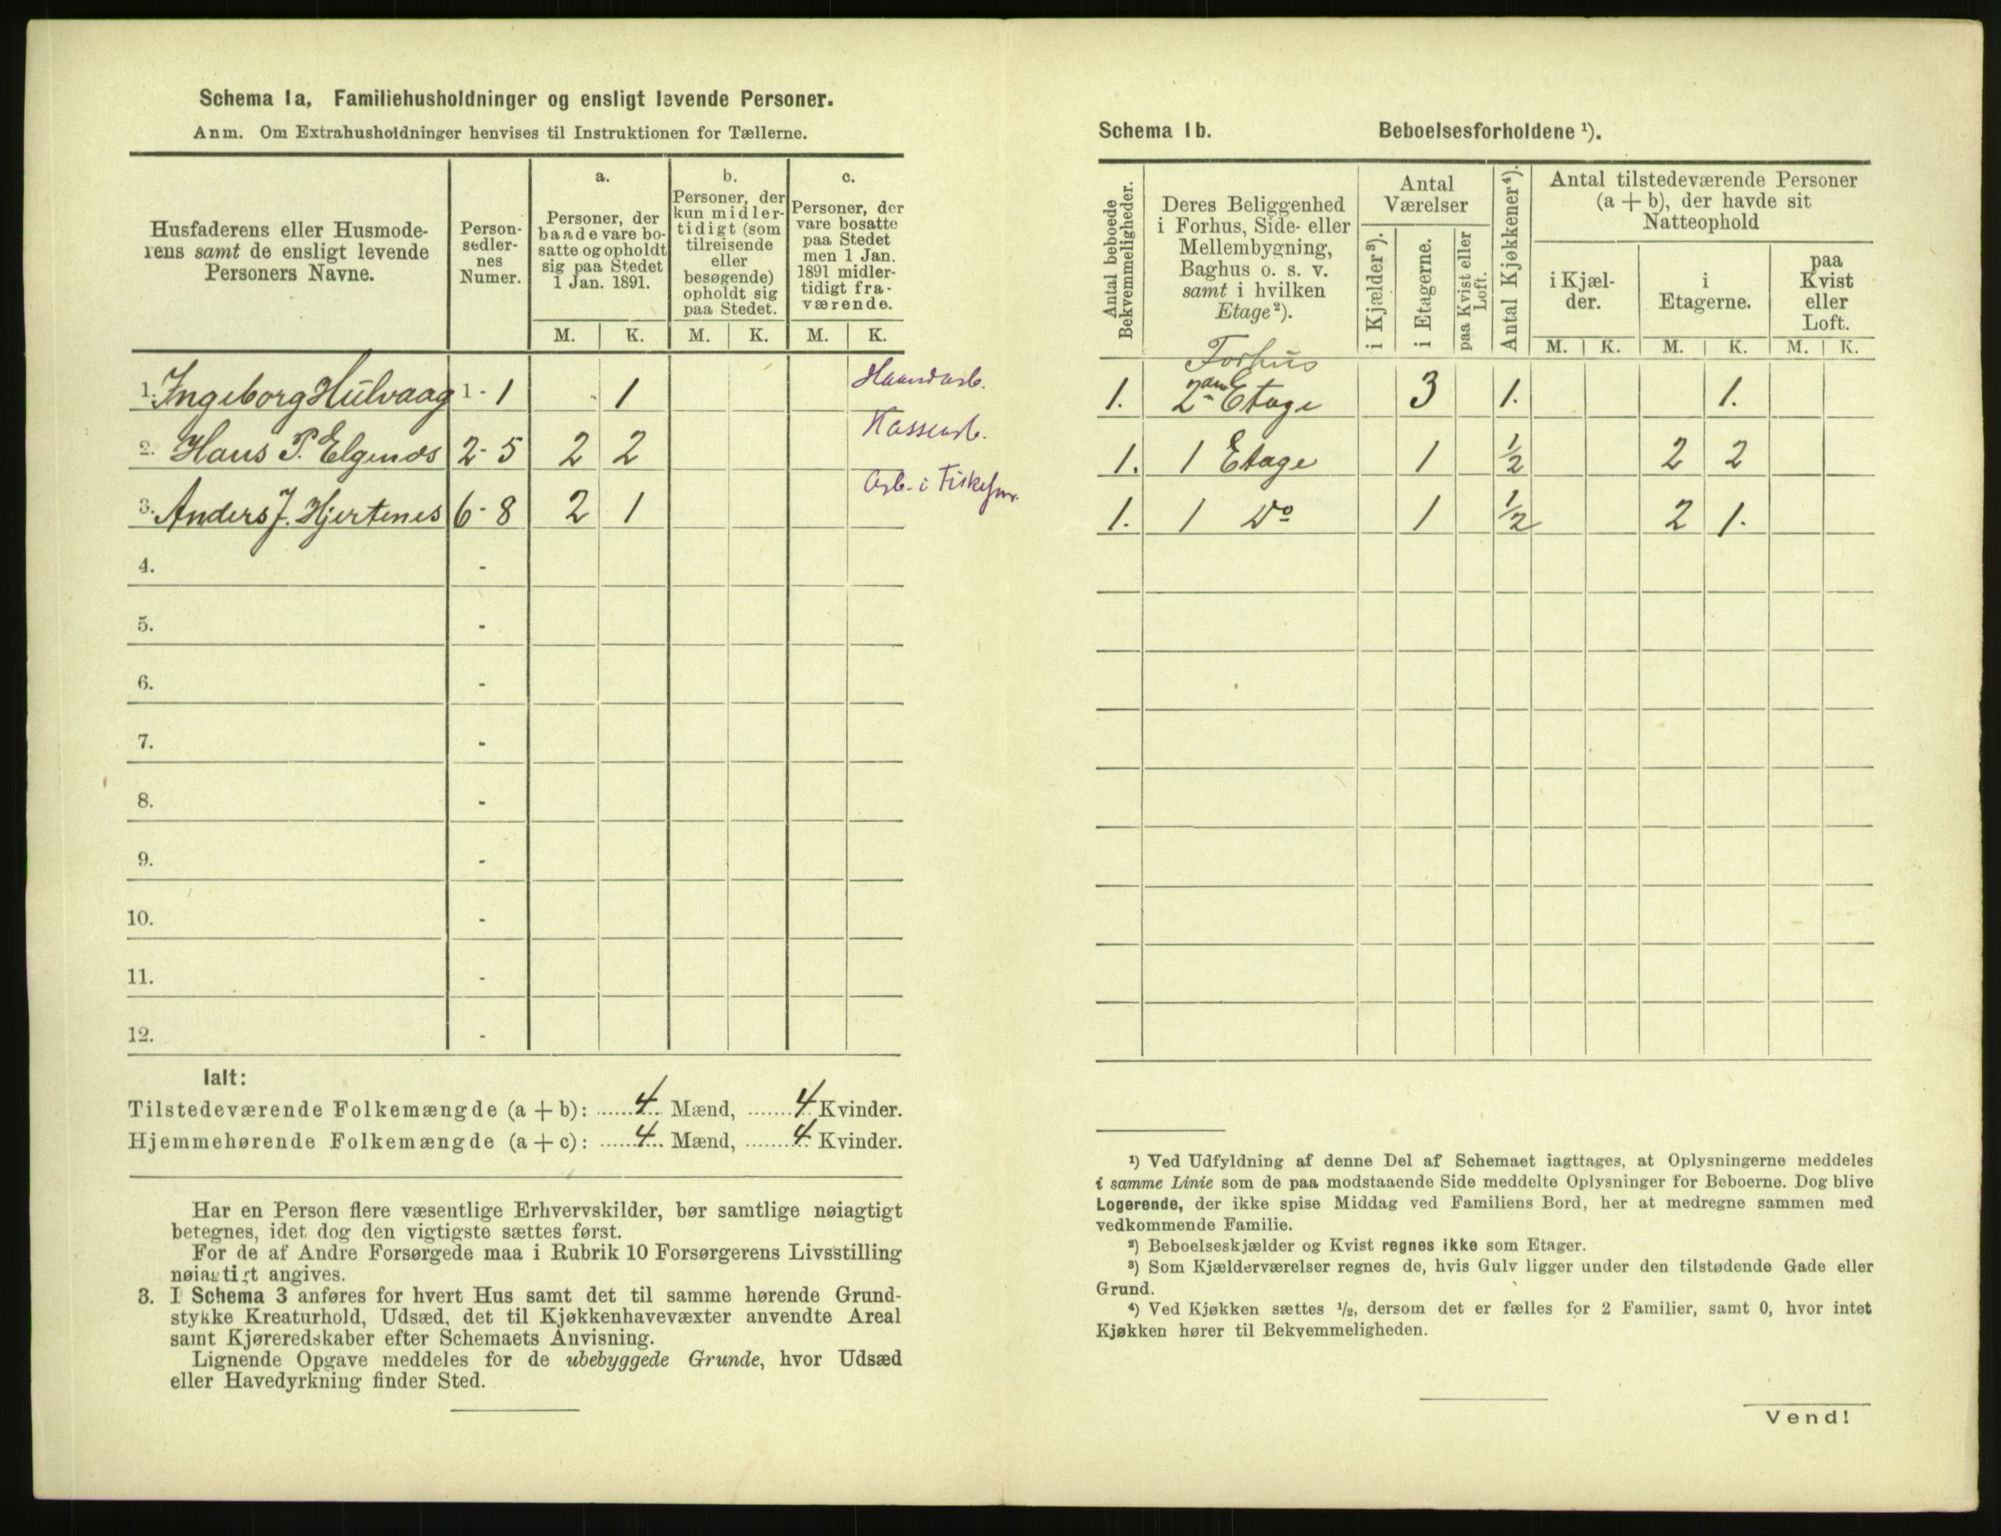 Schema 1a, Familiehusholdninger og ensligt levende Personer.
Anm. Om Extrahusholdninger henvises til Instruktionen for Tællerne.
Husfaderens eller Husmoderens samt de ensligt levende Personers Navne.
Personsedlernes Numer.
a.
Personer, der baade vare bosatte og opholdt sig paa Stedet 1 Jan. 1891.
b.
Personer, der kun midlertidigt (som tilreisende eller besøgende) opholdt sig paa Stedet.
c.
Personer, der vare bosatte paa Stedet men 1 Jan. 1891 midlertidigt fraværende.
M. K. M. K. M. K.
1. Ingeborg Hulvaag 1 - 1 1 Haandarb.
2. Hans P. Elgenæs 2 - 5 2 2
3. Anders J. Hjertenes 6 - 8 2 1 Arb. i
4. -
5. -
6. -
7. -
8. -
9. -
10. -
11. -
12. -
Ialt:
Tilstedeværende Folkemængde (a + b): 4 Mænd, 4 Kvinder.
Hjemmehørende Folkemængde (a + c): 4 Mænd, 4 Kvinder.
Har en Person flere væsentlige Erhvervskilder, bør samtlige nøiagtigt
betegnes, idet dog den vigtigste sættes først.
For de af Andre Forsørgede maa i Rubrik 10 Forsørgerens Livsstilling
nøiagtigt angives.
3. I Schema 3 anføres for hvert Hus samt det til samme hørende Grund-
stykke Kreaturhold, Udsæd, det til Kjøkkenhavevæxter anvendte Areal
samt Kjøreredskaber efter Schemaets Anvisning.
Lignende Opgave meddeles for de ubebyggede Grunde, hvor Udsæd
eller Havedyrkning finder Sted.
Schema 1b. Beboelsesforholdene ¹).
Antal beboede Bekvemmeligheder.
Deres Beliggenhed i Forhus, Side- eller Mellembygning, Baghus o. s. v. samt i hvilken Etage²).
Antal Værelser
i Kjælder³).
i Etagerne.
paa Kvist eller Loft.
Antal Kjøkkener⁴).
Antal tilstedeværende Personer (a + b), der havde sit Natteophold
i Kjælder.
i Etagerne.
paa Kvist eller Loft.
M. K. M. K. M. K.
Forhus
1. 2den Etage 3 1. 1.
1. 1 Etage 1 ½ 2 2
1. 1 Do 1 ½ 2 1.
¹) Ved Udfyldning af denne Del af Schemaet iagttages, at Oplysningerne meddeles
i samme Linie som de paa modstaaende Side meddelte Oplysninger for Beboerne. Dog blive
Logerende, der ikke spise Middag ved Familiens Bord, her at medregne sammen med
vedkommende Familie.
²) Beboelseskjælder og Kvist regnes ikke som Etager.
³) Som Kjælderværelser regnes de, hvis Gulv ligger under den tilstødende Gade eller
Grund.
⁴) Ved Kjøkken sættes ½, dersom det er fælles for 2 Familier, samt 0, hvor intet
Kjøkken hører til Bekvemmeligheden.
Vend!